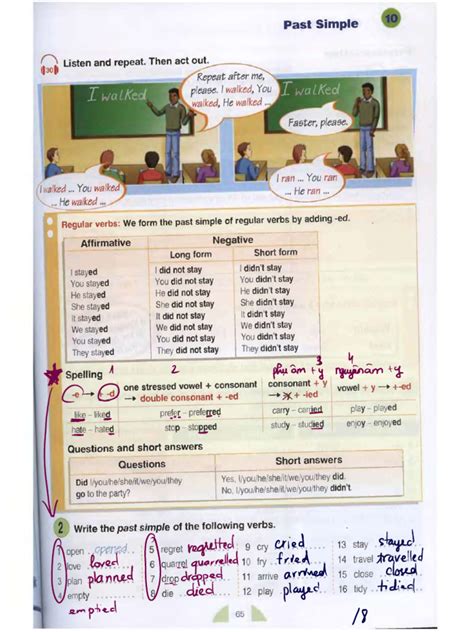 Past Simple 10
30 Listen and repeat. Then act out.
I walked
Repeat after me, please. I walked, You walked, He walked ...
I walked
Faster, please.
I walked ... You walked ... He walked ...
I ran ... You ran ... He ran ...
Regular verbs: We form the past simple of regular verbs by adding -ed.
Affirmative Negative
Long form Short form
I stayed I did not stay I didn't stay
You stayed You did not stay You didn't stay
He stayed He did not stay He didn't stay
She stayed She did not stay She didn't stay
It stayed It did not stay It didn't stay
We stayed We did not stay We didn't stay
You stayed You did not stay You didn't stay
They stayed They did not stay They didn't stay
1 2 3 4
Spelling phụ âm + y nguyên âm + y
-e → + -d one stressed vowel + consonant → double consonant + -ed consonant + y → y + -ied vowel + y → + -ed
like – liked prefer – preferred carry – carried play – played
hate – hated stop – stopped study – studied enjoy – enjoyed
Questions and short answers
Questions Short answers
Did I/you/he/she/it/we/you/they go to the party? Yes, I/you/he/she/it/we/you/they did.
No, I/you/he/she/it/we/you/they didn't.
2 Write the past simple of the following verbs.
1 open opened 5 regret regretted 9 cry cried 13 stay stayed
2 love loved 6 quarrel quarrelled 10 fry fried 14 travel travelled
3 plan planned 7 drop dropped 11 arrive arrived 15 close closed
4 empty 8 die died 12 play played 16 tidy tidied
emptied
65
18